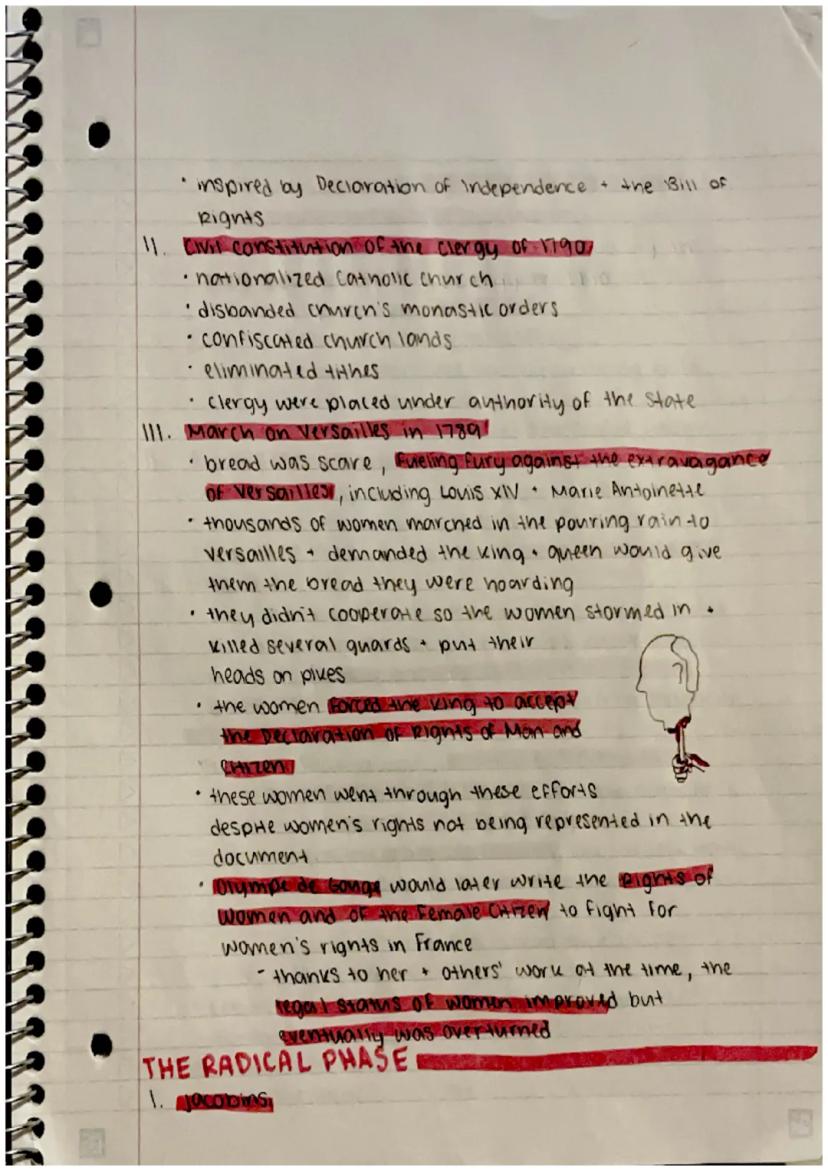 • inspired by Declaration of Independence + the Bill of
Rights
II. Civil constitution of the clergy of 1790
• nationalized Catholic church
• disbanded church's monastic orders
• confiscated church lands
• eliminated tithes
• clergy were placed under authority of the state
III. March on Versailles in 1789
• bread was scare, fueling fury against the extravagance
of Versailles, including Louis XIV + Marie Antoinette
• thousands of women marched in the pouring rain to
versailles + demanded the king + queen would give
them the bread they were hoarding
• they didn't cooperate so the women stormed in +
killed several guards + put their
heads on pikes
• the women forced the king to accept
the Declaration of Rights of Man and
Citizen
• these women went through these efforts
despite women's rights not being represented in the
document
• Olympe de Gouge would later write the Rights of
Women and of the Female Citizen to fight for
women's rights in France
- thanks to her + others' work at the time, the
legal status of women improved but
eventually was overturned
THE RADICAL PHASE
I. Jacobins